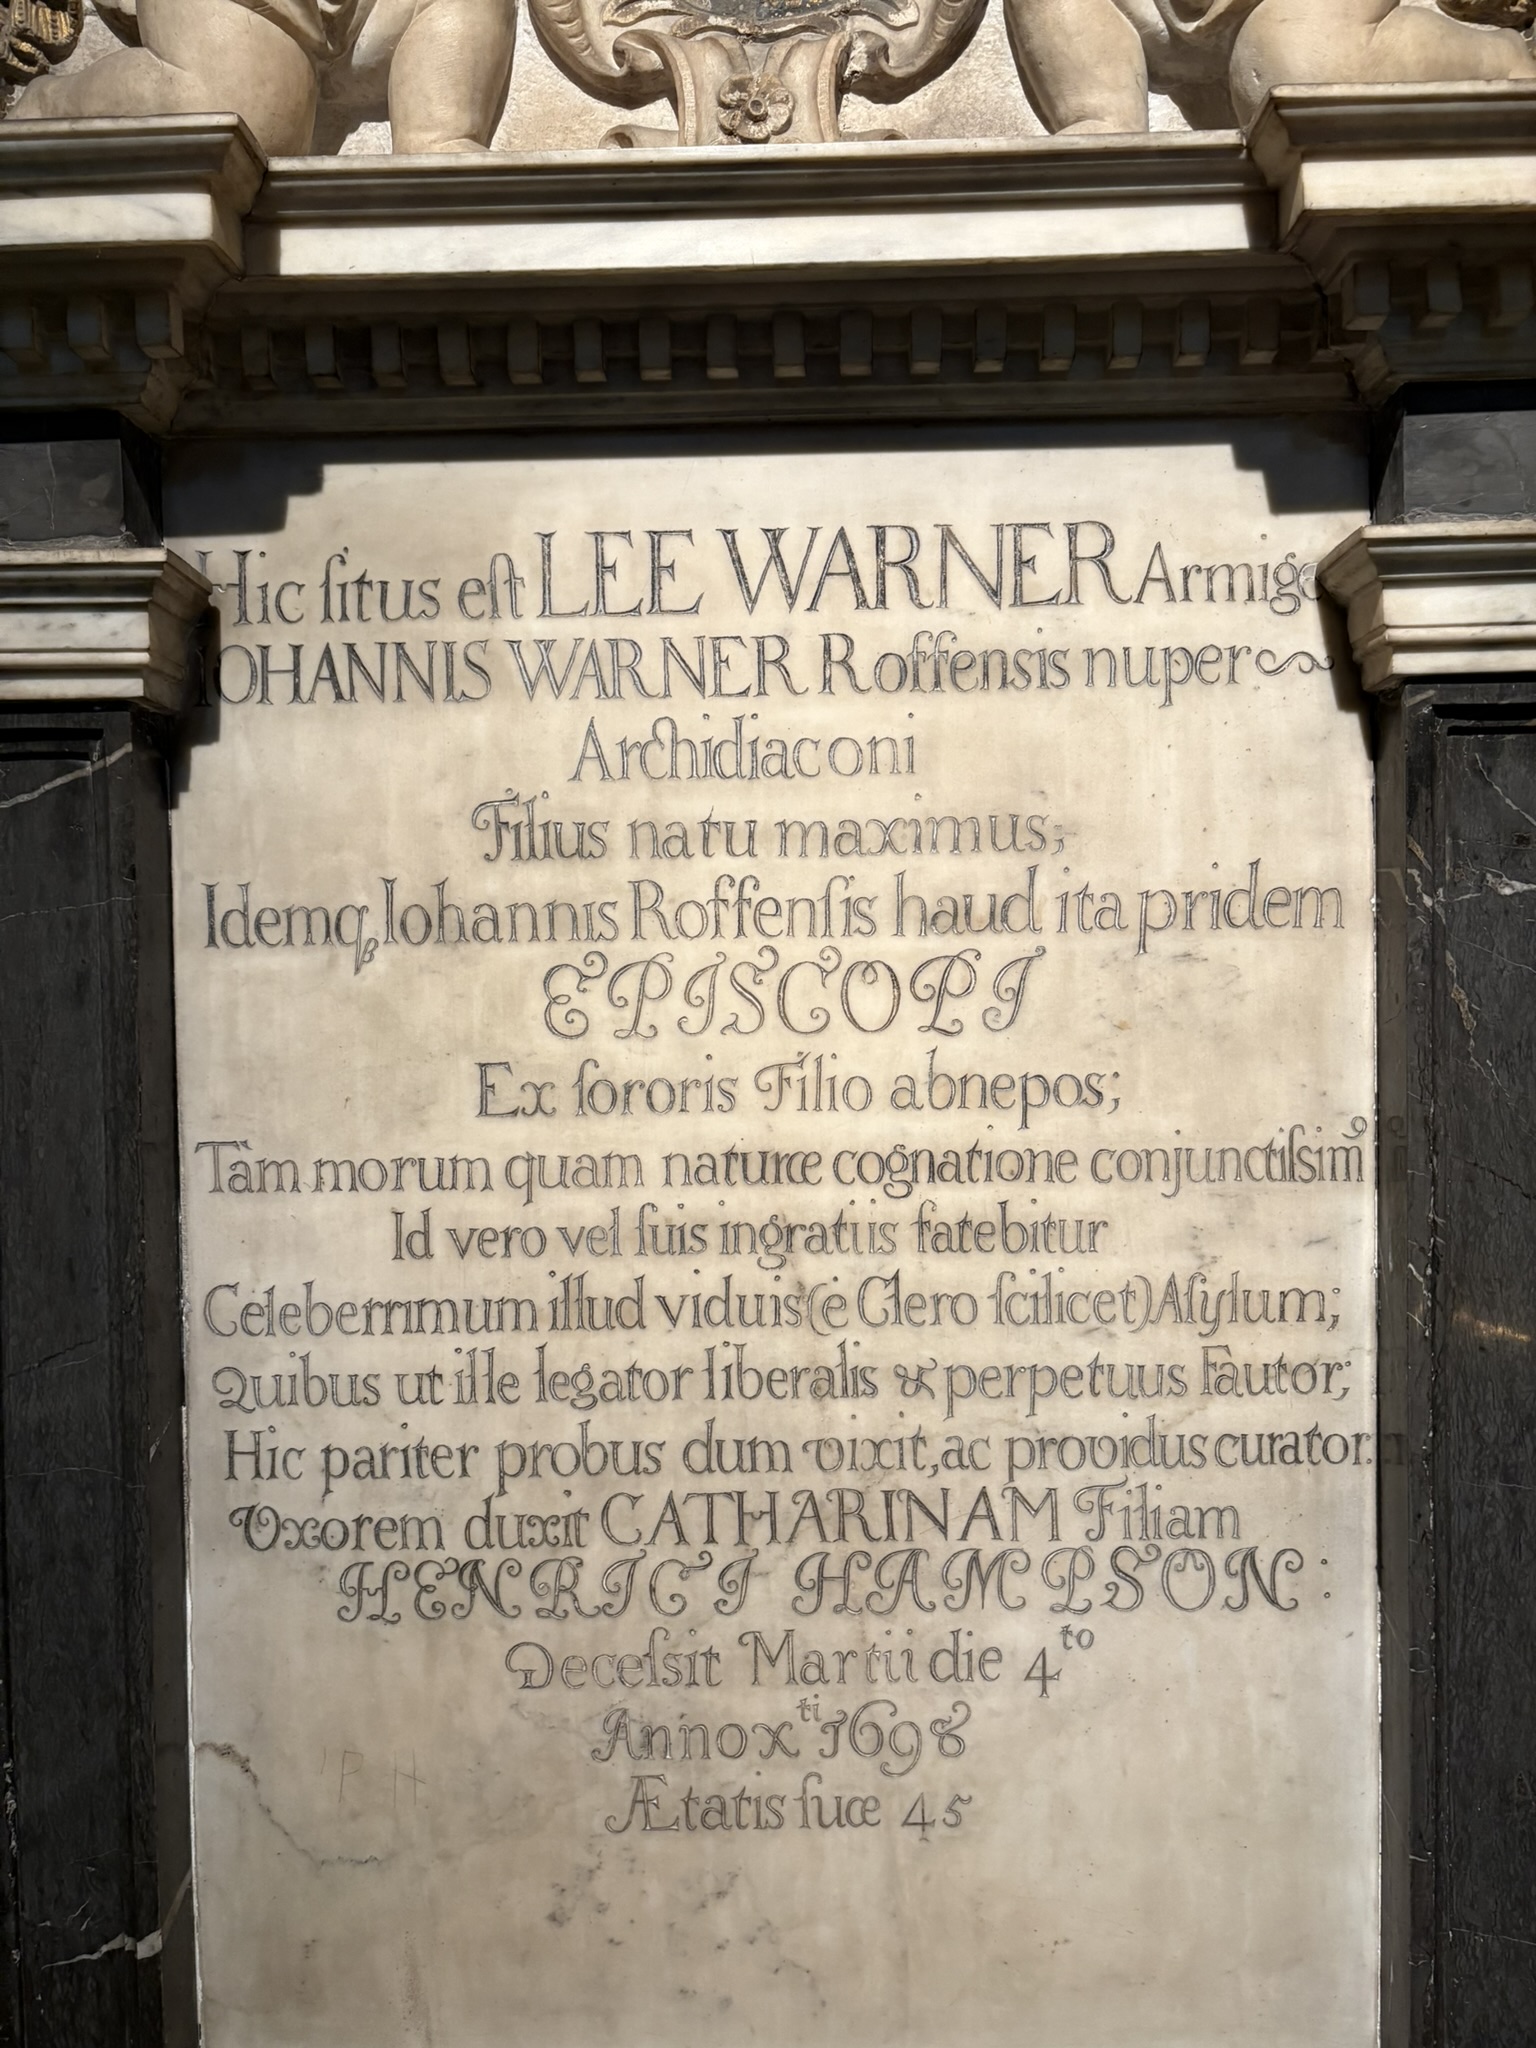 Hic ſitus eſt LEE WARNER Armige
IOHANNIS WARNER Roffensis nuper
Archidiaconi
Filius natu maximus;
Idemqꝫ Iohannis Roffenſis haud ita pridem
EPISCOPI
Ex ſororis Filio abnepos;
Tàm morum quam naturæ cognatione conjunctiſsim⁹
Id vero vel ſuis ingratiis fatebitur
Celeberrimum illud viduis (è Clero ſcilicet) Aſylum;
Quibus ut ille legator liberalis & perpetuus Fautor;
Hic pariter probus dum vixit, ac providus curator.
Vxorem duxit CATHARINAM Filiam
HENRICI HAMPSON:
Deceſsit Martii die 4ᵗᵒ
Anno xᵗⁱ 1698
Ætatis ſuæ 45
P H